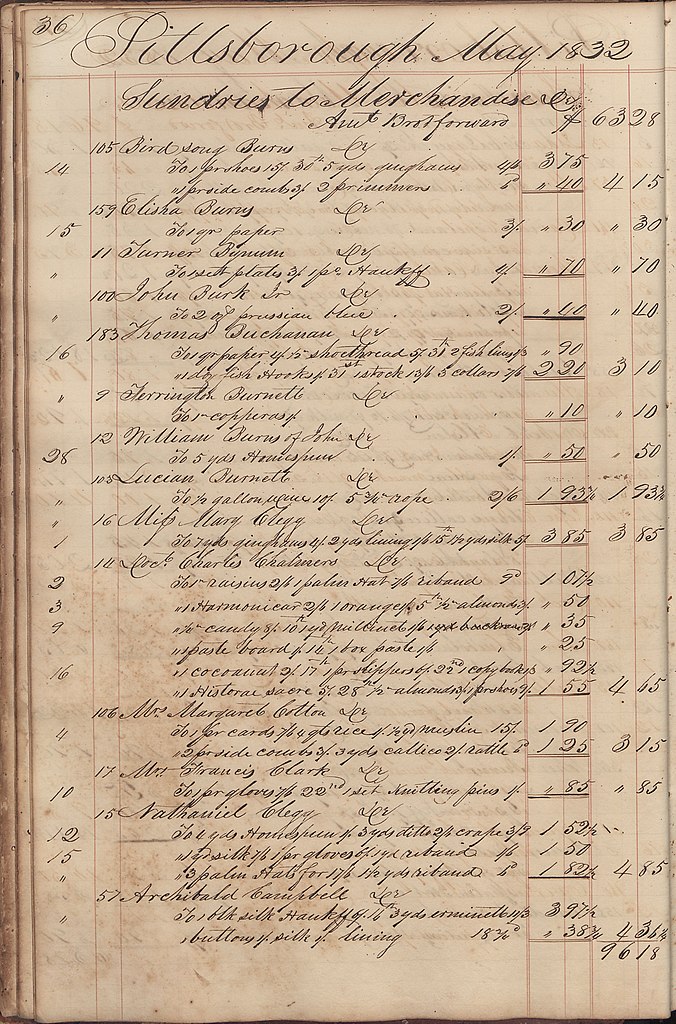 36
Pittsborough May 1832
Sundries to Merchandise Dr
Amt Brot forward $ 63 28
105 Bird song Burns Dr
14 To 1 pr shoes 15/. 30th 5 yds ginghams 4/6 3 75
" pr side combs 3/ 2 primmers 6d " 40 4 15
159 Elisha Burns Dr
15 To 1 qr paper 3/. " 30 " 30
11 Turner Bynum Dr
" To 1 sett plates 3/. 1 pc Hankff 4/. " 70 " 70
100 John Burk Jr Dr
" To 2 oz prussian blue 2/. " 40 " 40
183 Thomas Buchanan Dr
16 To 1 qr paper 4/. shoethread 5/. 31st 2 fish lines " 90
" 1 doz fish Hooks 31st 1 stock 13/6 3 collars 7/6 2 20 3 10
" 9 Terrington Burnett Dr
To copperas " 10 " 10
12 William Burns of John Dr
28 To 5 yds Homespun 1/. " 50 " 50
103 Lucian Burnett Dr
" To ½ gallon 10/. 5 rope 2/6 1 93½ 1 93½
" 16 Miss Mary Clegg Dr
1 To 7 yds ginghams 4/. 2 yds lining 1/6 15th 1½ yds silk 5/ 3 85 3 85
14 Doct. Charles Chalmers Dr
2 To raisins 2/6 1 palm Hat 7/6 riband 9d 1 07½
3 " 1 Harmonicar 2/6 1 orange 5th ½ almonds 3/. " 50
9 " candy 8/. 10th 1 yd Millinet 1/6 1 yd buckram " 35
" paste board 14th 1 box paste 1/6 " 25
16 " 1 cocoanut 2/. 17th 1 pr slippers 6/. 22nd 1 copy book " 92½
" 1 Historae sacre 5/. 28th ½ almonds 3/. 1 pr shoes 1 55 4 65
106 Mrs Margaret Cotton Dr
4 To 1 pr cards 7/6 4 qts rice ½ yd muslin 15/. 1 90
" 2 pr side combs 3/. 3 yds callico 2/. rattle 6d 1 25 3 15
17 Mrs Francis Clark Dr
10 To 1 pr gloves 7/6 22nd 1 set Knitting pins 1/. " 85 " 85
15 Nathaniel Clegg Dr
12 To 4 yds Homespun 1/. 3 yds ditto 2/6 crape 3/9 1 52½
15 " 1 yd silk 7/6 1 pr gloves 6/. 1 yd riband 1/6 1 50
" " 3 palm Hats for 17/6 1½ yds riband 6d 1 82½ 4 85
57 Archibald Campbell Dr
" To 1 blk silk Hankff 9/. 3 yds erminett 3 97½
" buttons silk lining 18¾d " 38¾ 4 36¼
96 18